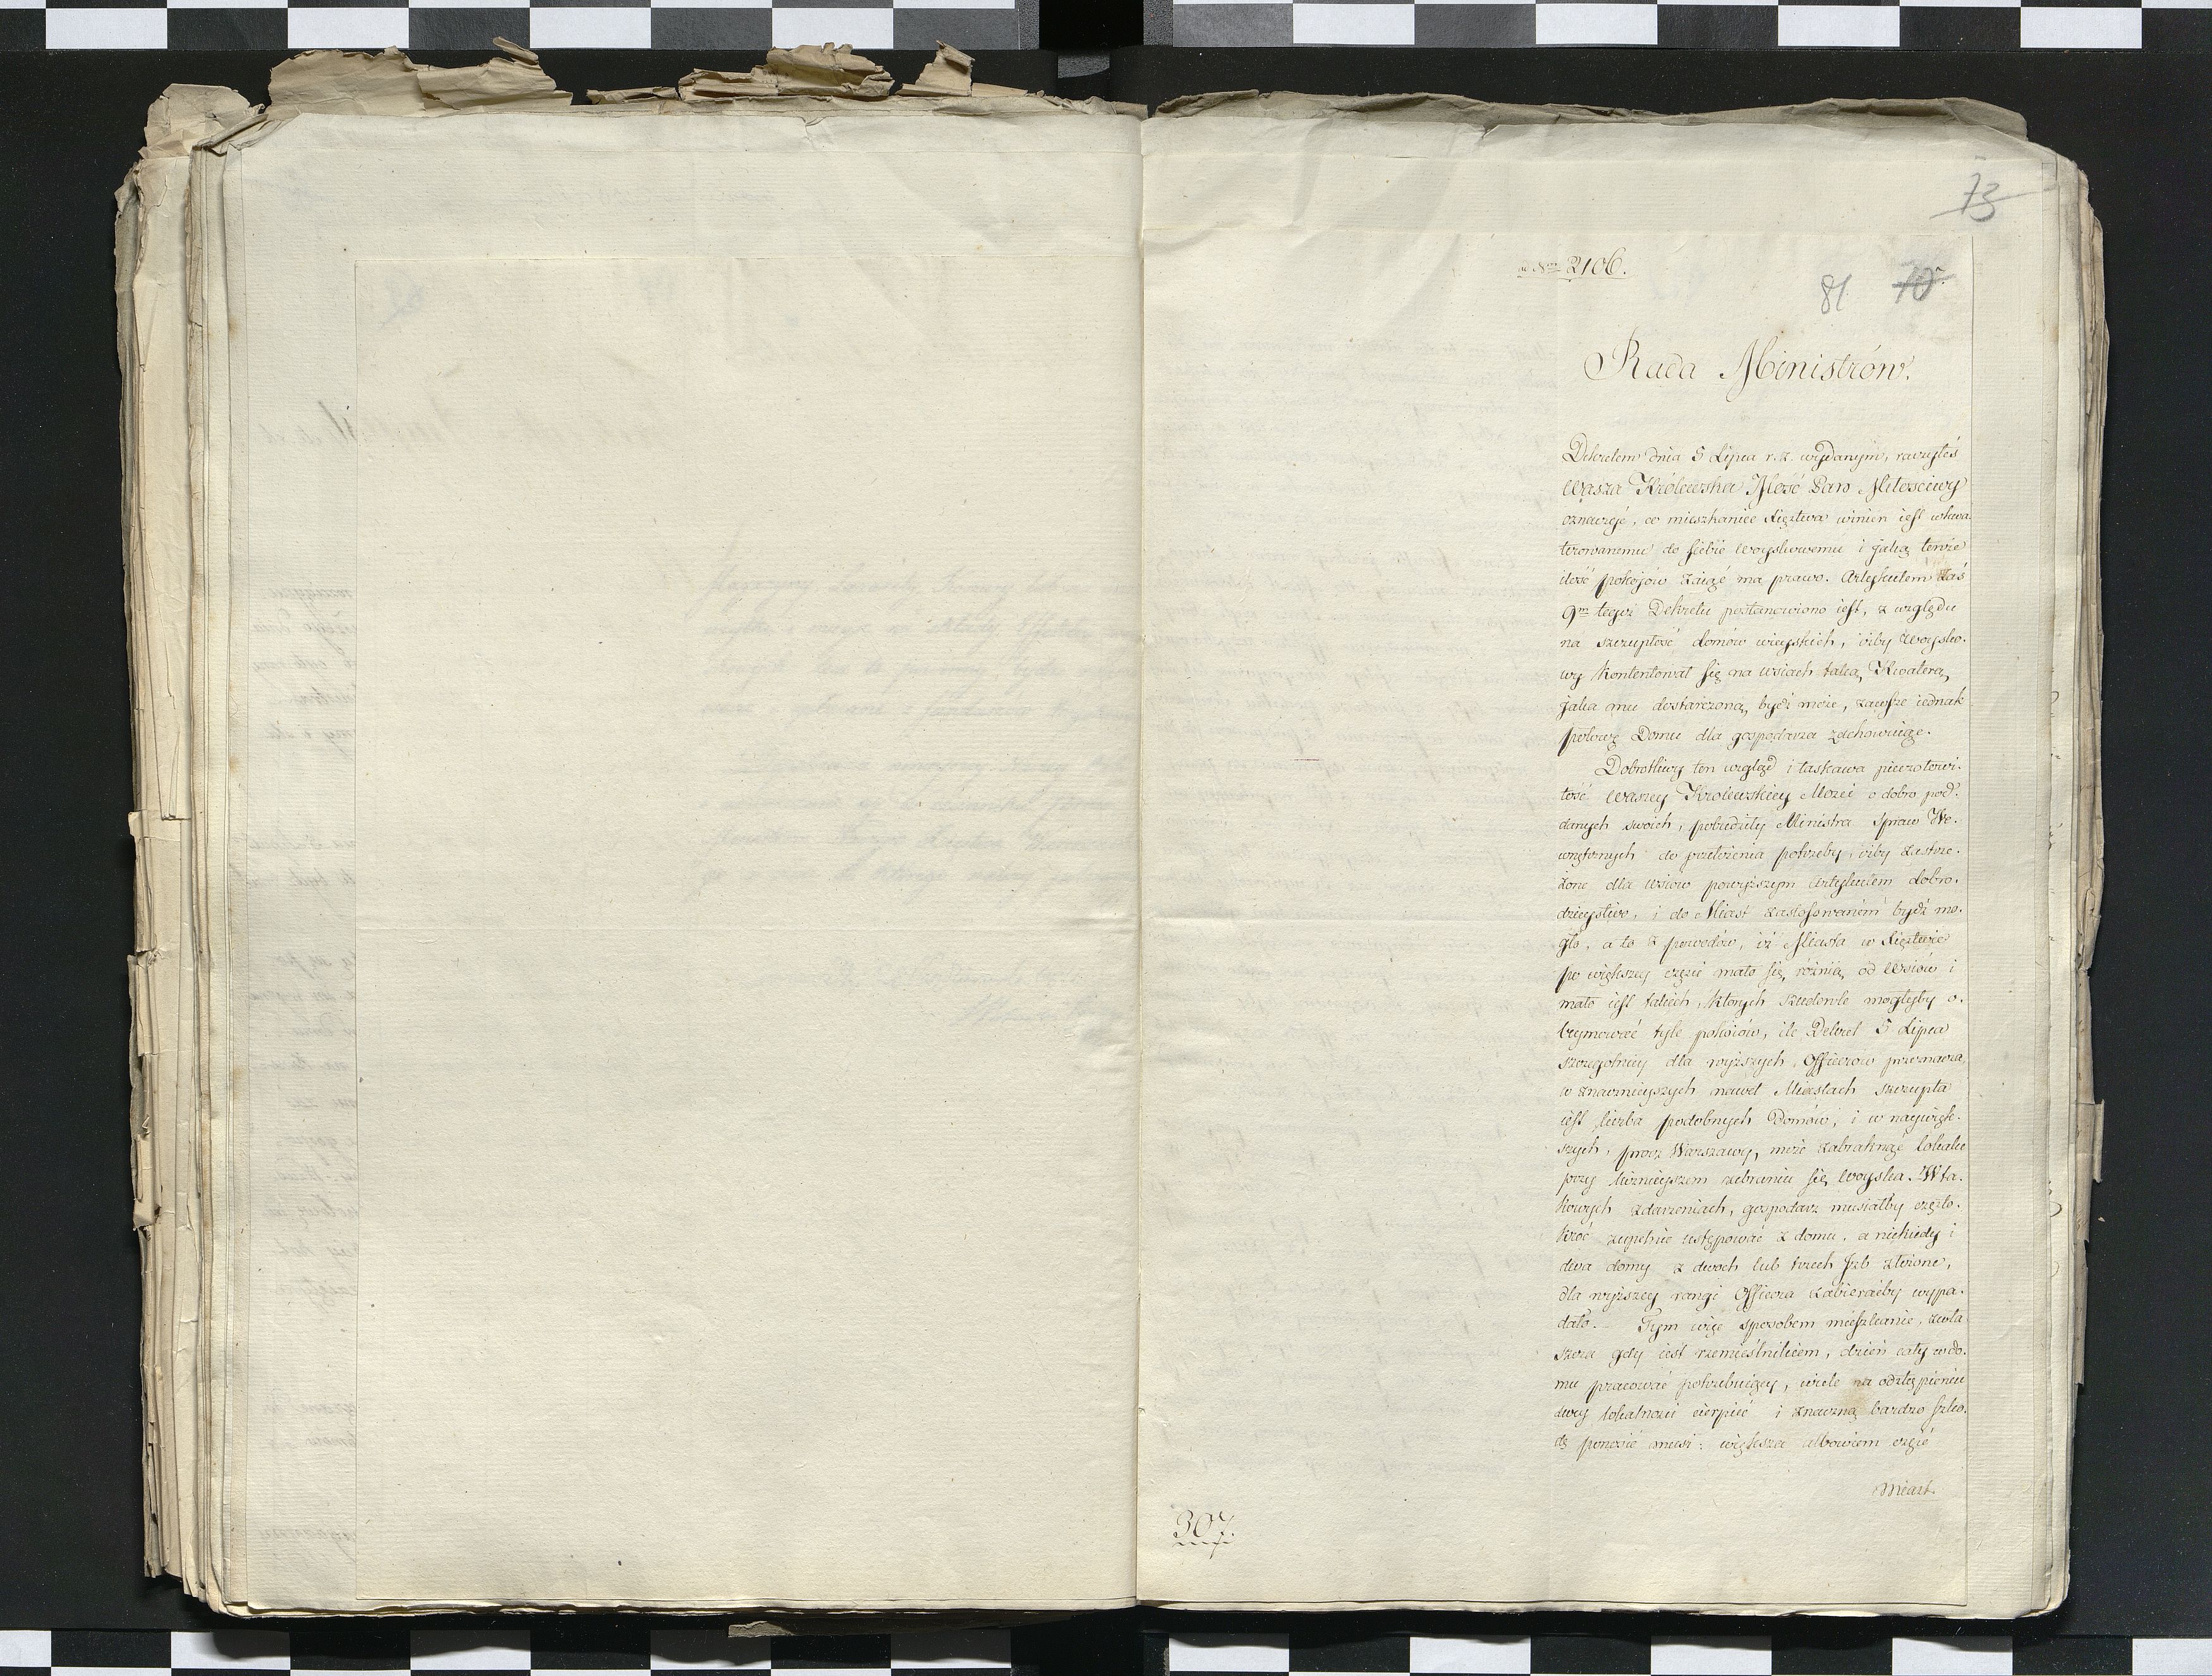 73
ad Nrm 2106.
81 70
Rada Ministrów.
Dekretem dnia 5 Lipca r. z. wydanym, raczyłeś
Wasza Królewska Mość Pan Miłościwy
oznaczyć, co mieszkaniec Xięztwa winien iest wkwa-
terowanemu do siebie Woyskowemu i jaką tenże
ilość pokojów zaiąć ma prawo. Artykułem zaś
9m tegoż Dekretu postanowiono iest, z względu
na szczupłość domów wieyskich, iżby Woysko-
wy kontentował się na wsiach taką Kwaterą,
jaka mu dostarczoną bydź może, zawsze iednak
połowę Domu dla gospodarza zachowuiąc.
Dobrotliwy ten wzgląd i łaskawa pieczołowi-
tość Waszey Krolewskiey Mości o dobro pod-
danych swoich, pobudziły Ministra Spraw We-
wnętrznych do przełożenia potrzeby, iżby zastrze-
żone dla wsiów powyższym Artykułem dobro-
dzieystwo, i do Miast zastosowaném bydź mo-
gło, a to z powodów, iż Miasta w Xięztwie
po większey części mało się różnią od Wsiów i
mało iest takich, których szczególe mogłyby o-
beymować tyle pokoiów, ile Dekret 5 Lipca
szczegolniey dla wyższych Officerów przeznacza,
w znacznieyszych nawet Miastach szczupła
iest liczba podobnych Domów, i w naywięk-
szych, prócz Warszawy, może zabraknąć lokalu
przy licznieyszem zebraniu się woyska. W ta-
kowych zdarzeniach, gospodarz musiałby często-
kroć zupełnie ustępować z domu, a niekiedy i
dwa domy z dwoch lub trzech Izb złożone,
dla wyższey rangi Officera zabieraćby wypa-
dało. Tym więc sposobem mieszkaniec, zwła-
szcza gdy iest rzemieślnikiem, dzień cały w do-
mu pracować potrzebuiący, wiele na odstąpieniu
swey lokalności cierpieć i znaczną bardzo szko-
dę ponosić musi: większa albowiem część
Miast
307.